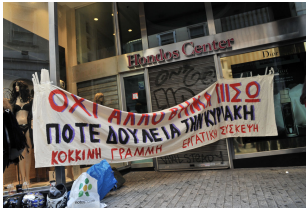 Hondos Center
ΟΧΙ ΑΛΛΟ ΒΗΜΑ ΠΙΣΩ
ΠΟΤΕ ΔΟΥΛΕΙΑ ΤΗΝ ΚΥΡΙΑΚΗ
ΚΟΚΚΙΝΗ ΓΡΑΜΜΗ ΕΡΓΑΤΙΚΗ ΣΥΣΚΕΨΗ